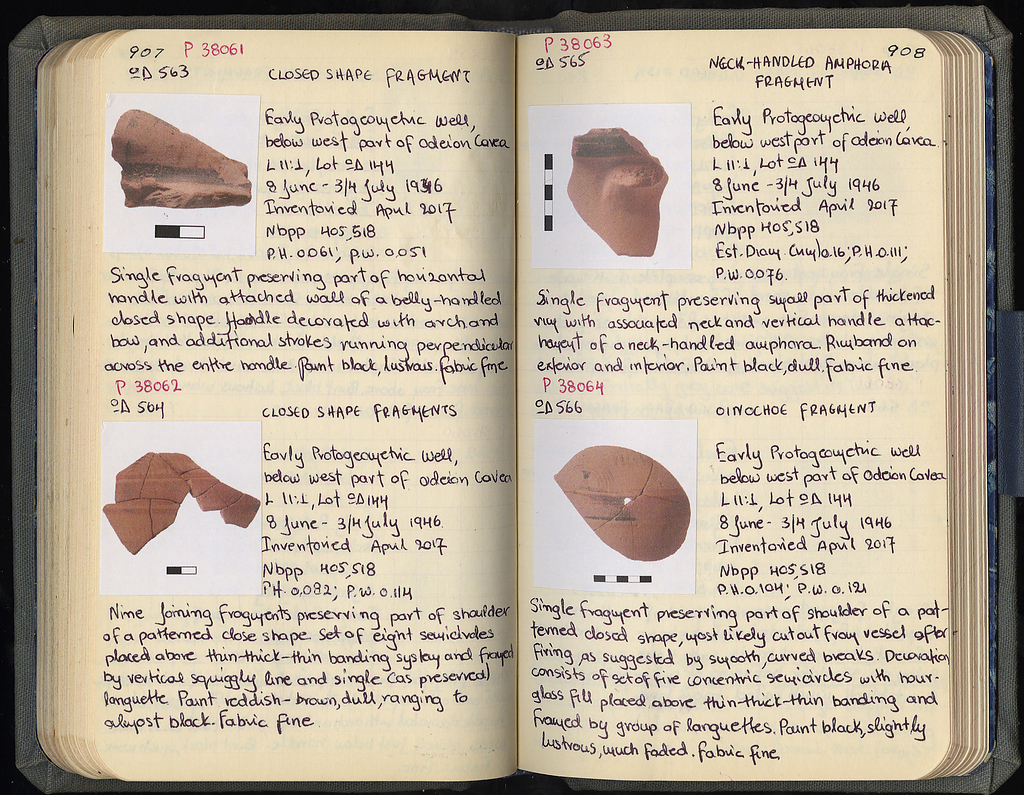 907 P 38061
ΩΔ 563 CLOSED SHAPE FRAGMENT
Early Protogeometric well,
below west part of Odeion Cavea
L 11:1, Lot ΩΔ 144
8 June - 3/4 July 1946
Inventoried April 2017
Nbpp 405,518
P.H. 0.061; p.w. 0.051
Single fragment preserving part of horizontal
handle with attached wall of a belly-handled
closed shape. Handle decorated with arch and
bow, and additional strokes running perpendicular
across the entire handle. Paint black, lustrous. Fabric fine
P 38062
ΩΔ 564 CLOSED SHAPE FRAGMENTS
Early Protogeometric well,
below west part of Odeion Cavea
L 11:1, Lot ΩΔ 144
8 June - 3/4 July 1946
Inventoried April 2017
Nbpp 405,518
P.H. 0.082; P.W. 0.114
Nine joining fragments preserving part of shoulder
of a patterned close shape. Set of eight semicircles
placed above thin-thick-thin banding system and framed
by vertical squiggly line and single (as preserved)
languette. Paint reddish-brown, dull, ranging to
almost black. Fabric fine.
P 38063 908
ΩΔ 565 NECK-HANDLED AMPHORA
FRAGMENT
Early Protogeometric well
below west part of Odeion Cavea.
L 11:1, Lot ΩΔ 144
8 June - 3/4 July 1946
Inventoried April 2017
Nbpp 405,518
Est. Diam (m) 0.16; P.H. 0.111;
P.W. 0.076.
Single fragment preserving small part of thickened
rim with associated neck and vertical handle attac-
hment of a neck-handled amphora. Rim band on
exterior and interior. Paint black, dull. Fabric fine
P 38064
ΩΔ 566 OINOCHOE FRAGMENT
Early Protogeometric well
below west part of Odeion Cavea
L 11:1, Lot ΩΔ 144
8 June - 3/4 July 1946
Inventoried April 2017
Nbpp 405,518
P.H. 0.104; P.W. 0.121
Single fragment preserving part of shoulder of a pat-
terned closed shape, most likely cut out from vessel after
firing, as suggested by smooth, curved breaks. Decoration
consists of set of five concentric semicircles with hour-
glass fill placed above thin-thick-thin banding and
framed by group of languettes. Paint black, slightly
lustrous, much faded. Fabric fine